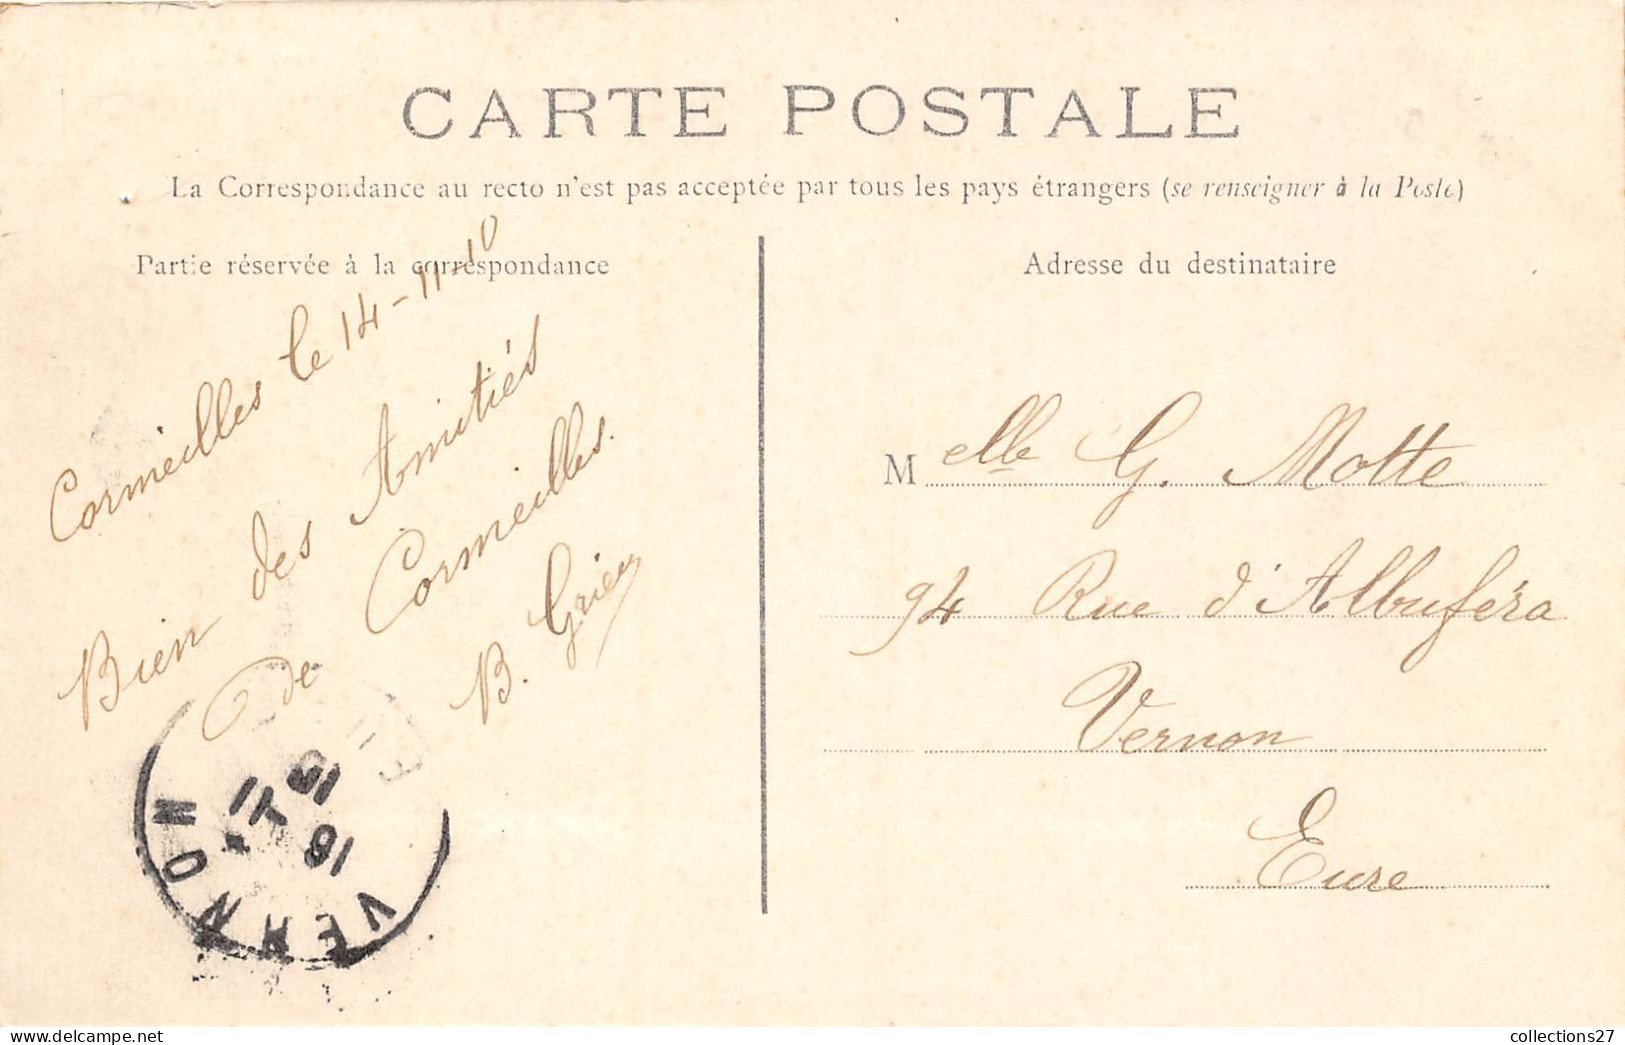 CARTE POSTALE
La Correspondance au recto n'est pas acceptée par tous les pays étrangers (se renseigner à la Poste)
Partie réservée à la correspondance
Adresse du destinataire
Cormeilles le 14-11-10
Bien des Amitiés
de Cormeilles.
B. Grieu
Melle G. Motte
94 Rue d'Albuféra
Vernon
Eure
VERNON
collections27